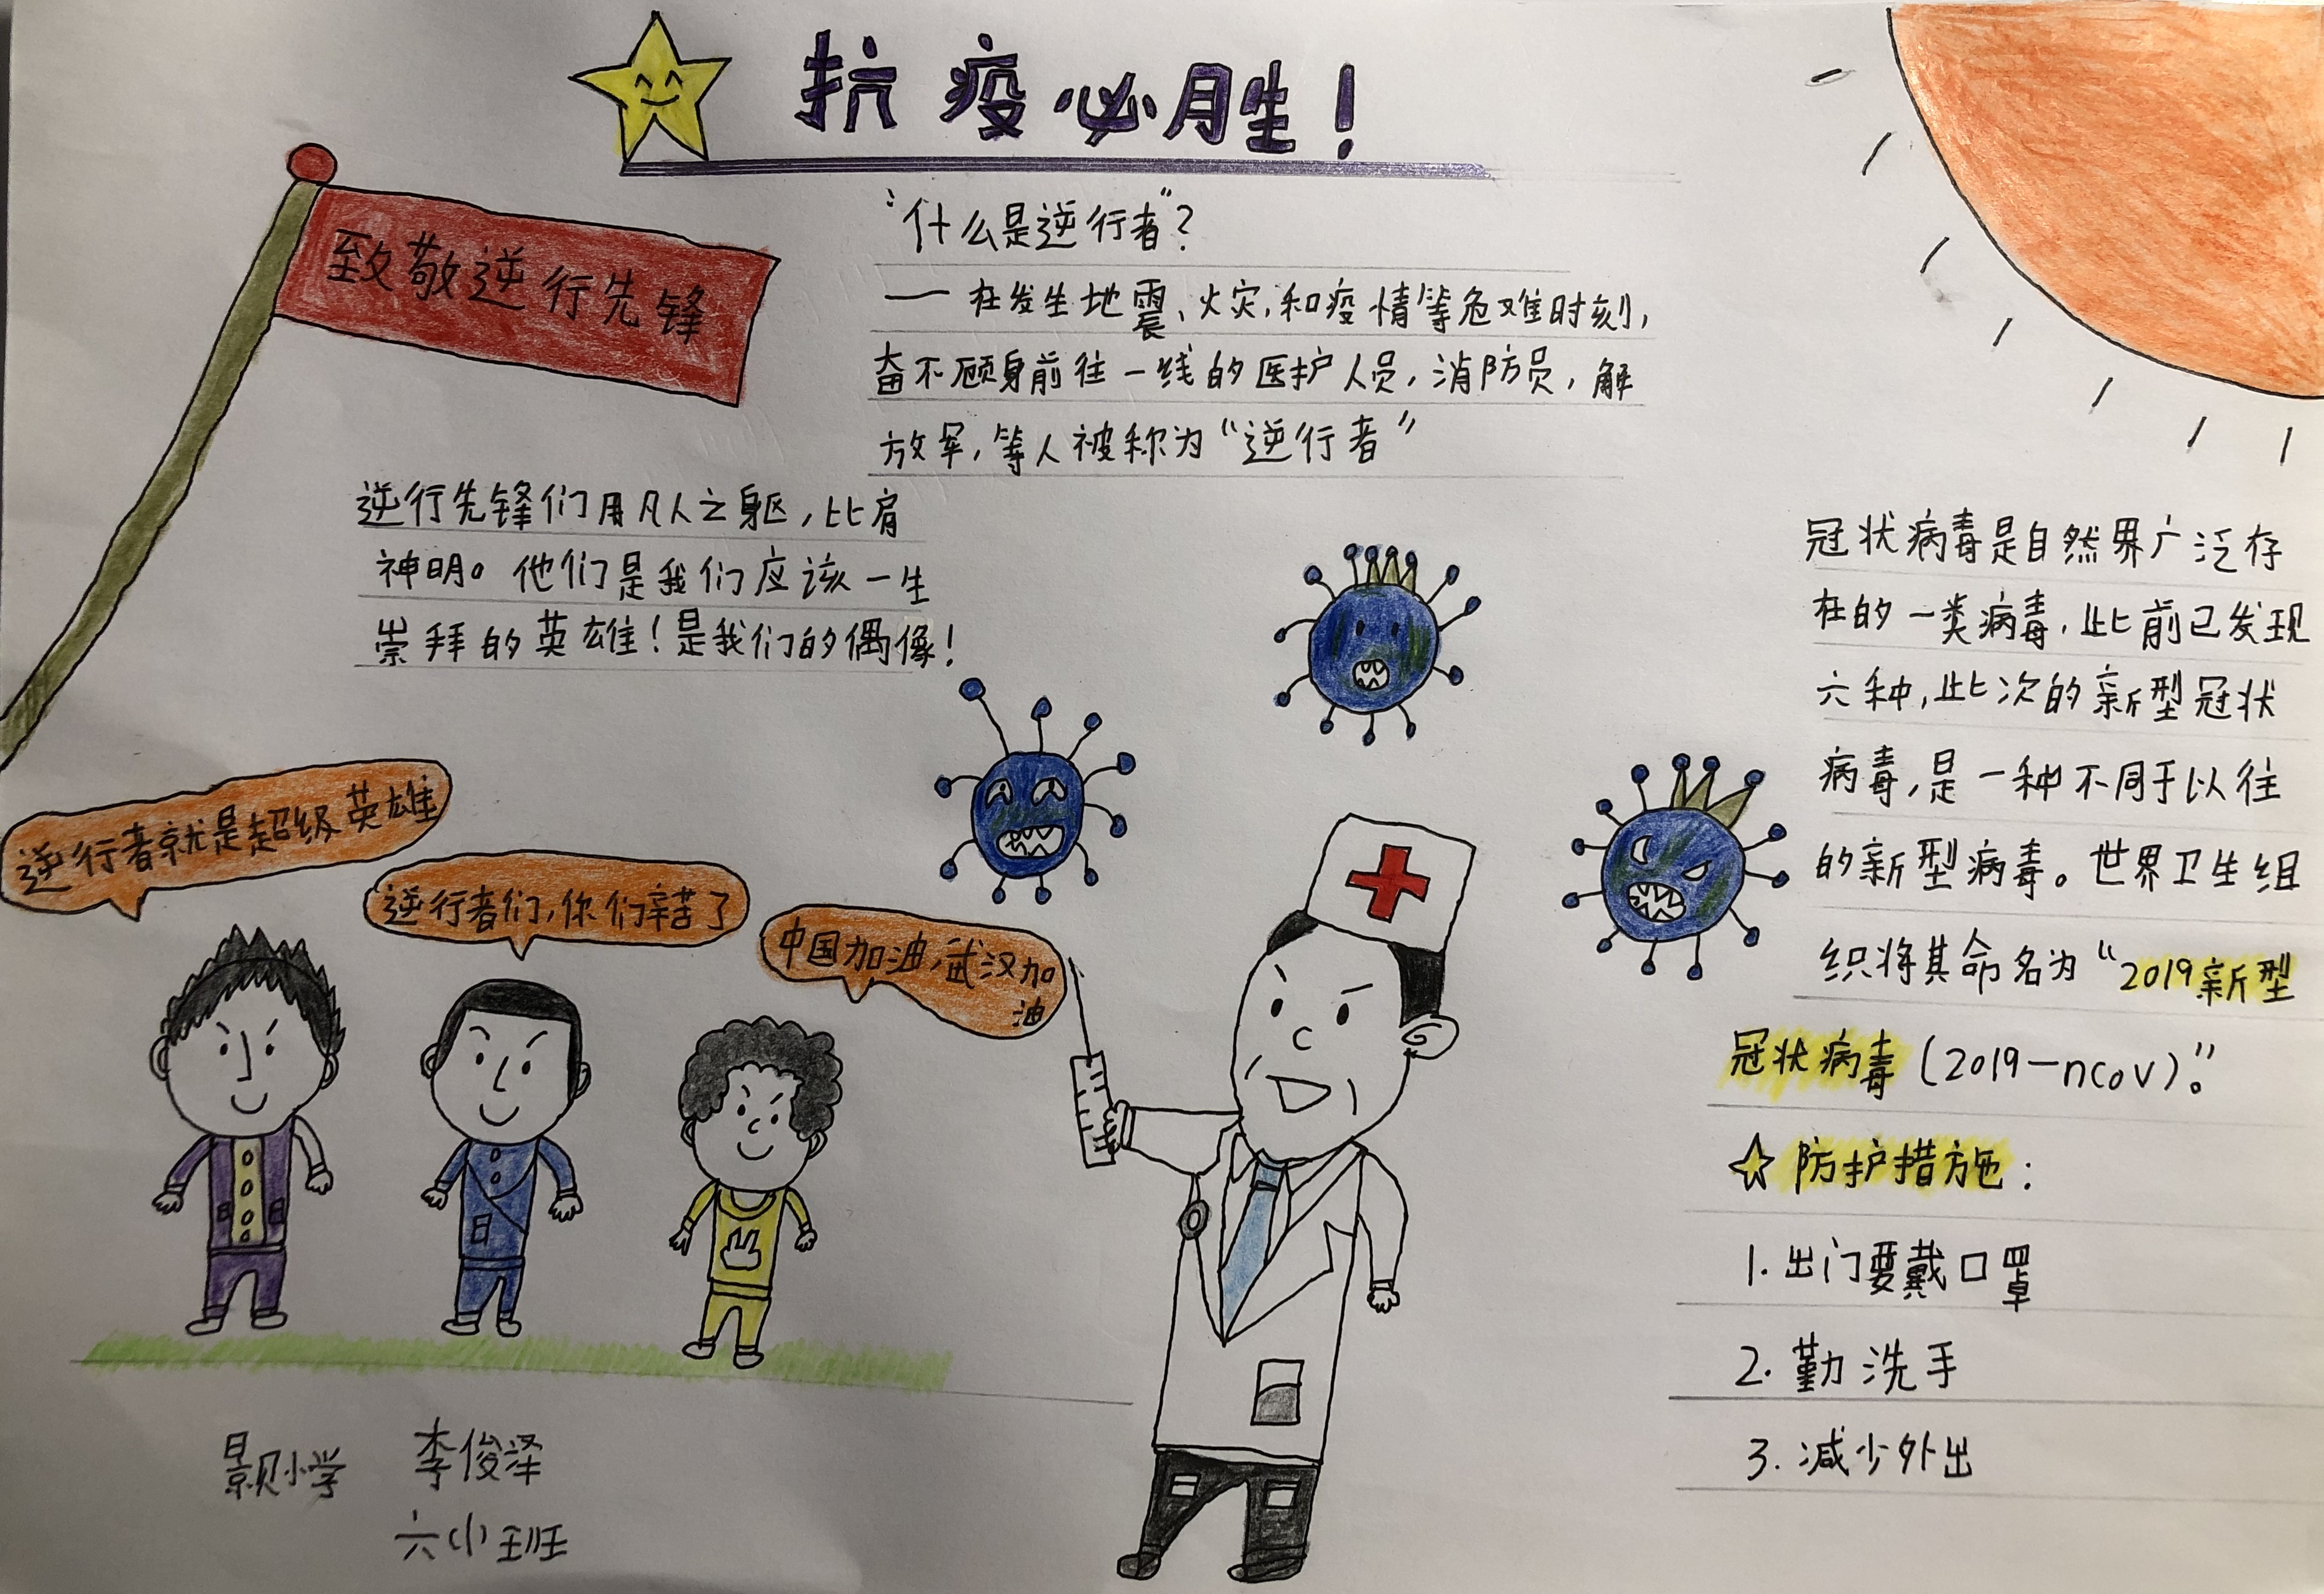 抗疫必胜!
致敬逆行先锋
“什么是逆行者”?
——在发生地震、火灾,和疫情等危难时刻,
奋不顾身前往一线的医护人员,消防员,解
放军,等人被称为“逆行者”
逆行先锋们用凡人之躯,比肩
神明。他们是我们应该一生
崇拜的英雄!是我们的偶像!
逆行者就是超级英雄
逆行者们,你们辛苦了
中国加油,武汉加
油
冠状病毒是自然界广泛存
在的一类病毒,此前已发现
六种,此次的新型冠状
病毒,是一种不同于以往
的新型病毒。世界卫生组
织将其命名为“2019新型
冠状病毒(2019-nCoV)。”
☆防护措施:
1.出门要戴口罩
2.勤洗手
3.减少外出
小学 李俊泽
班